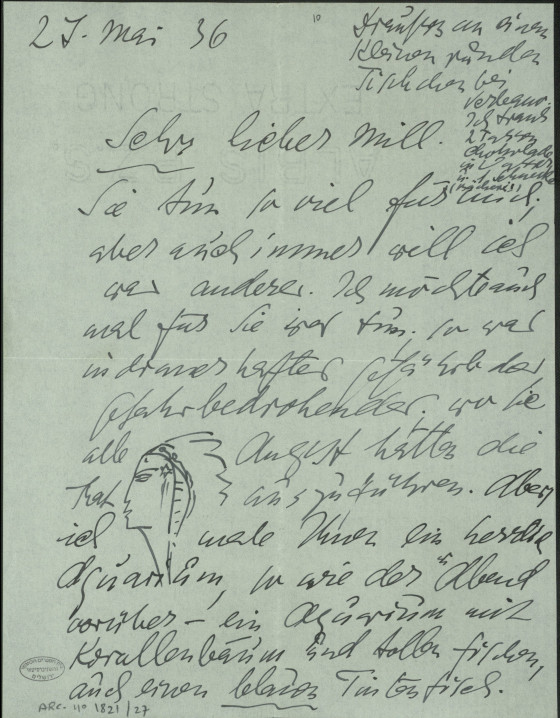 27. Mai 36
Draußen an einem
kleinen runden
Tischchen bei
Ich trank
2 Tassen
Sehr lieber Mill.
Sie tun so viel für mich;
aber auch immer will ich
was anderes. Ich möchte auch
mal für Sie was tun. so was
Gefahrbedrohendes, wo sie
alle Angst hätten die
Tat auszuführen. Aber
ich male Ihnen ein
Aquarium, so wie der Abend
vorüber – ein Aquarium mit
Korallenbaum und tollen Fischen,
auch einen blauen Tintenfisch.
ARC. 110 1821/27